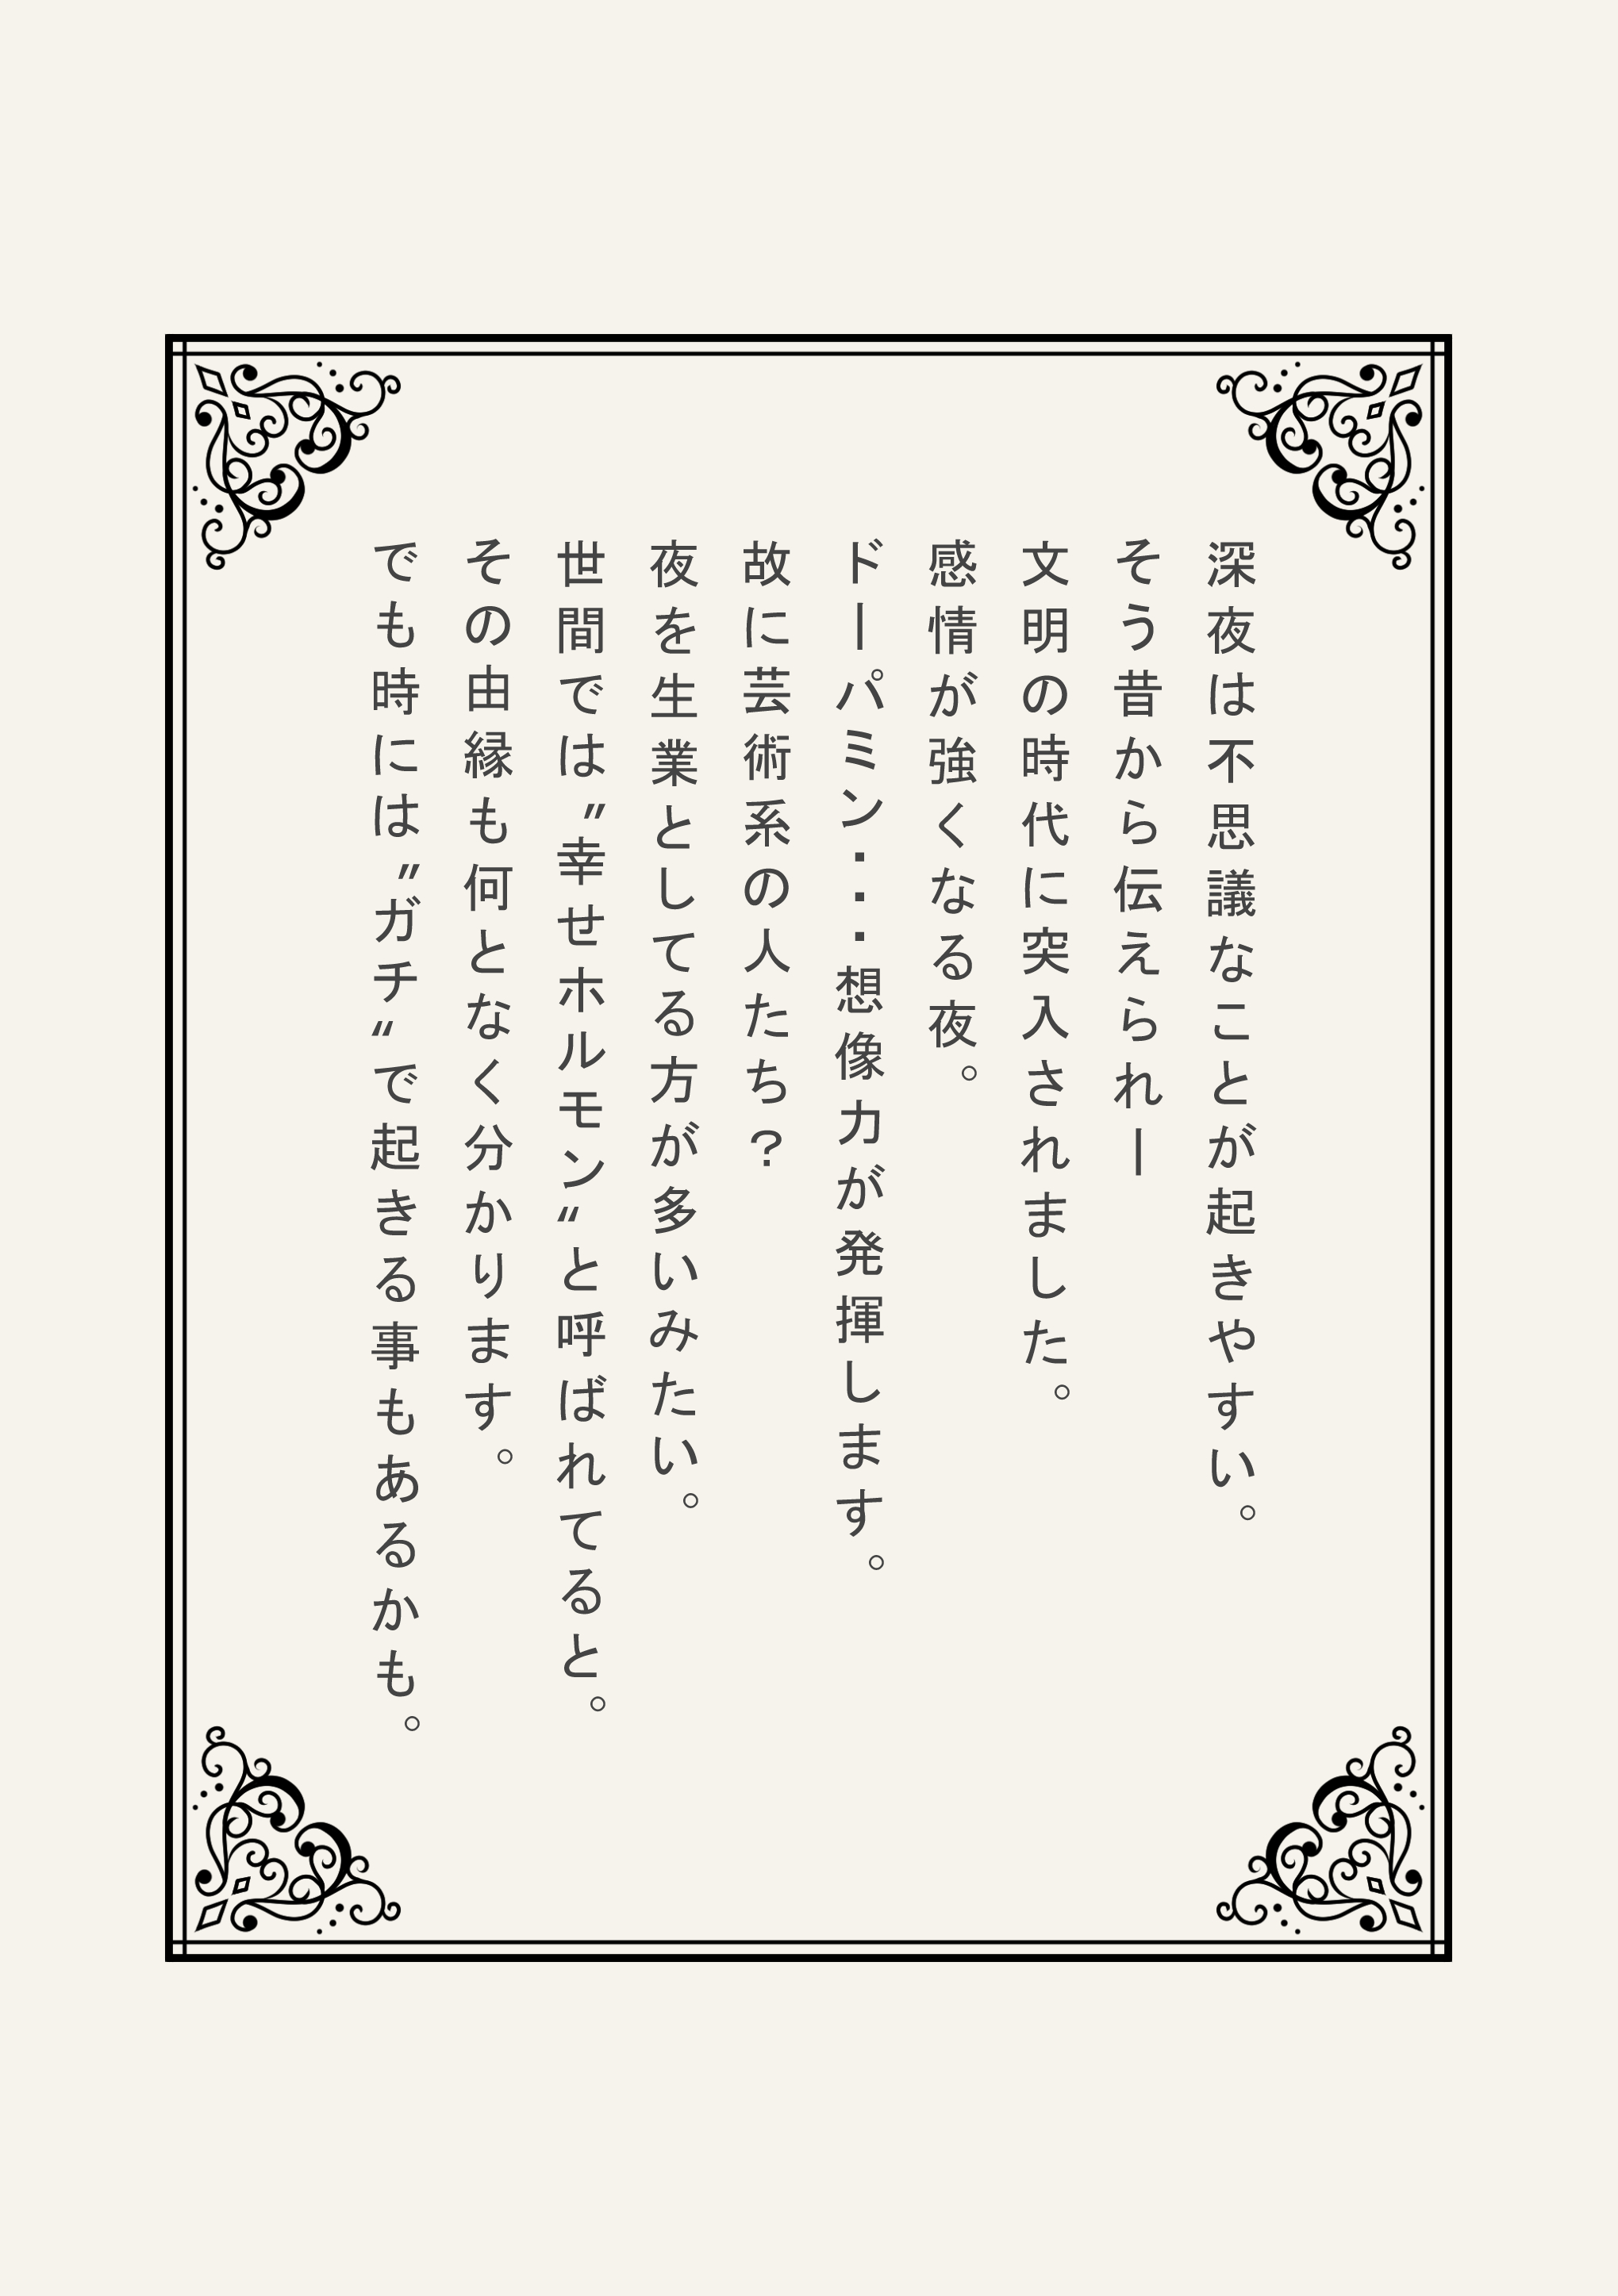 深夜は不思議なことが起きやすい。
そう昔から伝えられー
文明の時代に突入されました。
感情が強くなる夜。
ドーパミン・・・想像力が発揮します。
故に芸術系の人たち?
夜を生業としてる方が多いみたい。
世間では〝幸せホルモン〟と呼ばれてると。
その由縁も何となく分かります。
でも時には〝ガチ〟で起きる事もあるかも。